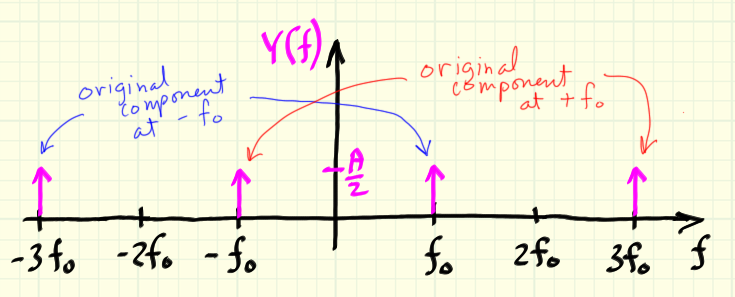 Y(f)
original
component
at - f₀
original
component
at + f₀
A/2
-3f₀ -2f₀ -f₀ f₀ 2f₀ 3f₀ f